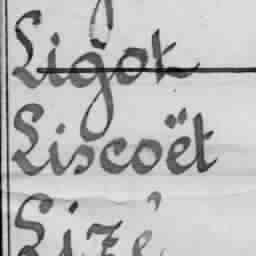 Ligot
Liscoët
Lizé